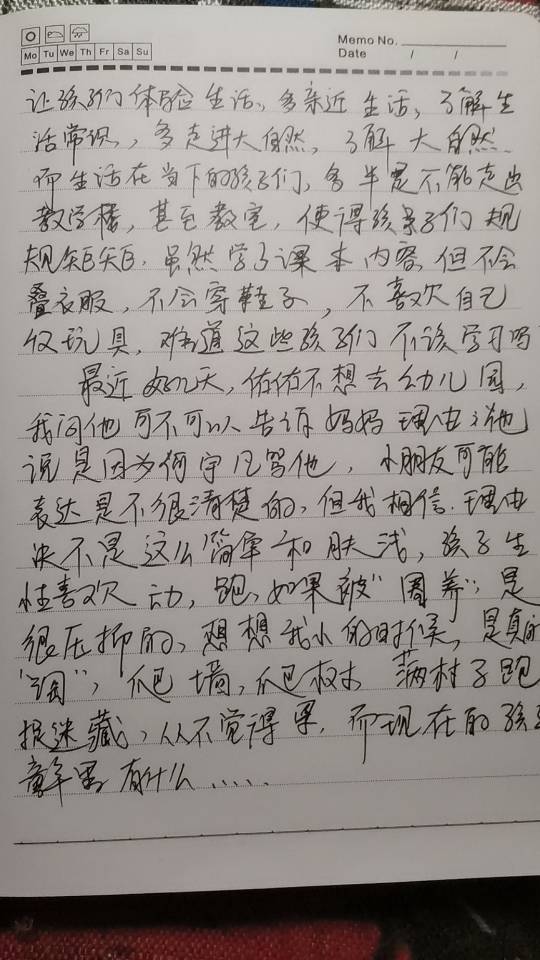 Memo No.
Mo Tu We Th Fr Sa Su
Date / /
让孩子们体验生活、多亲近生活,了解生
活常识,多走进大自然,了解大自然.
而生活在当下的孩子们,多半是不能走出
教学楼,甚至教室,使得孩子们规
规矩矩.虽然学了课本内容,但不会
叠衣服,不会穿鞋子,不喜欢自己
收玩具,难道这些孩子们不该学习吗
最近如几天,佑佑不想去幼儿园,
我问他可不可以告诉妈妈理由,他
说是因为何宇凡骂他,小朋友可能
表达是不很清楚的,但我相信.理由
决不是这么简单和肤浅,孩子生
性喜欢动,跑,如果被"圈养",是
很压抑的,想想我小的时候,是真的
"淘",爬墙,爬树,满村子跑
捉迷藏,从不觉得累,而现在的孩子
有什么......